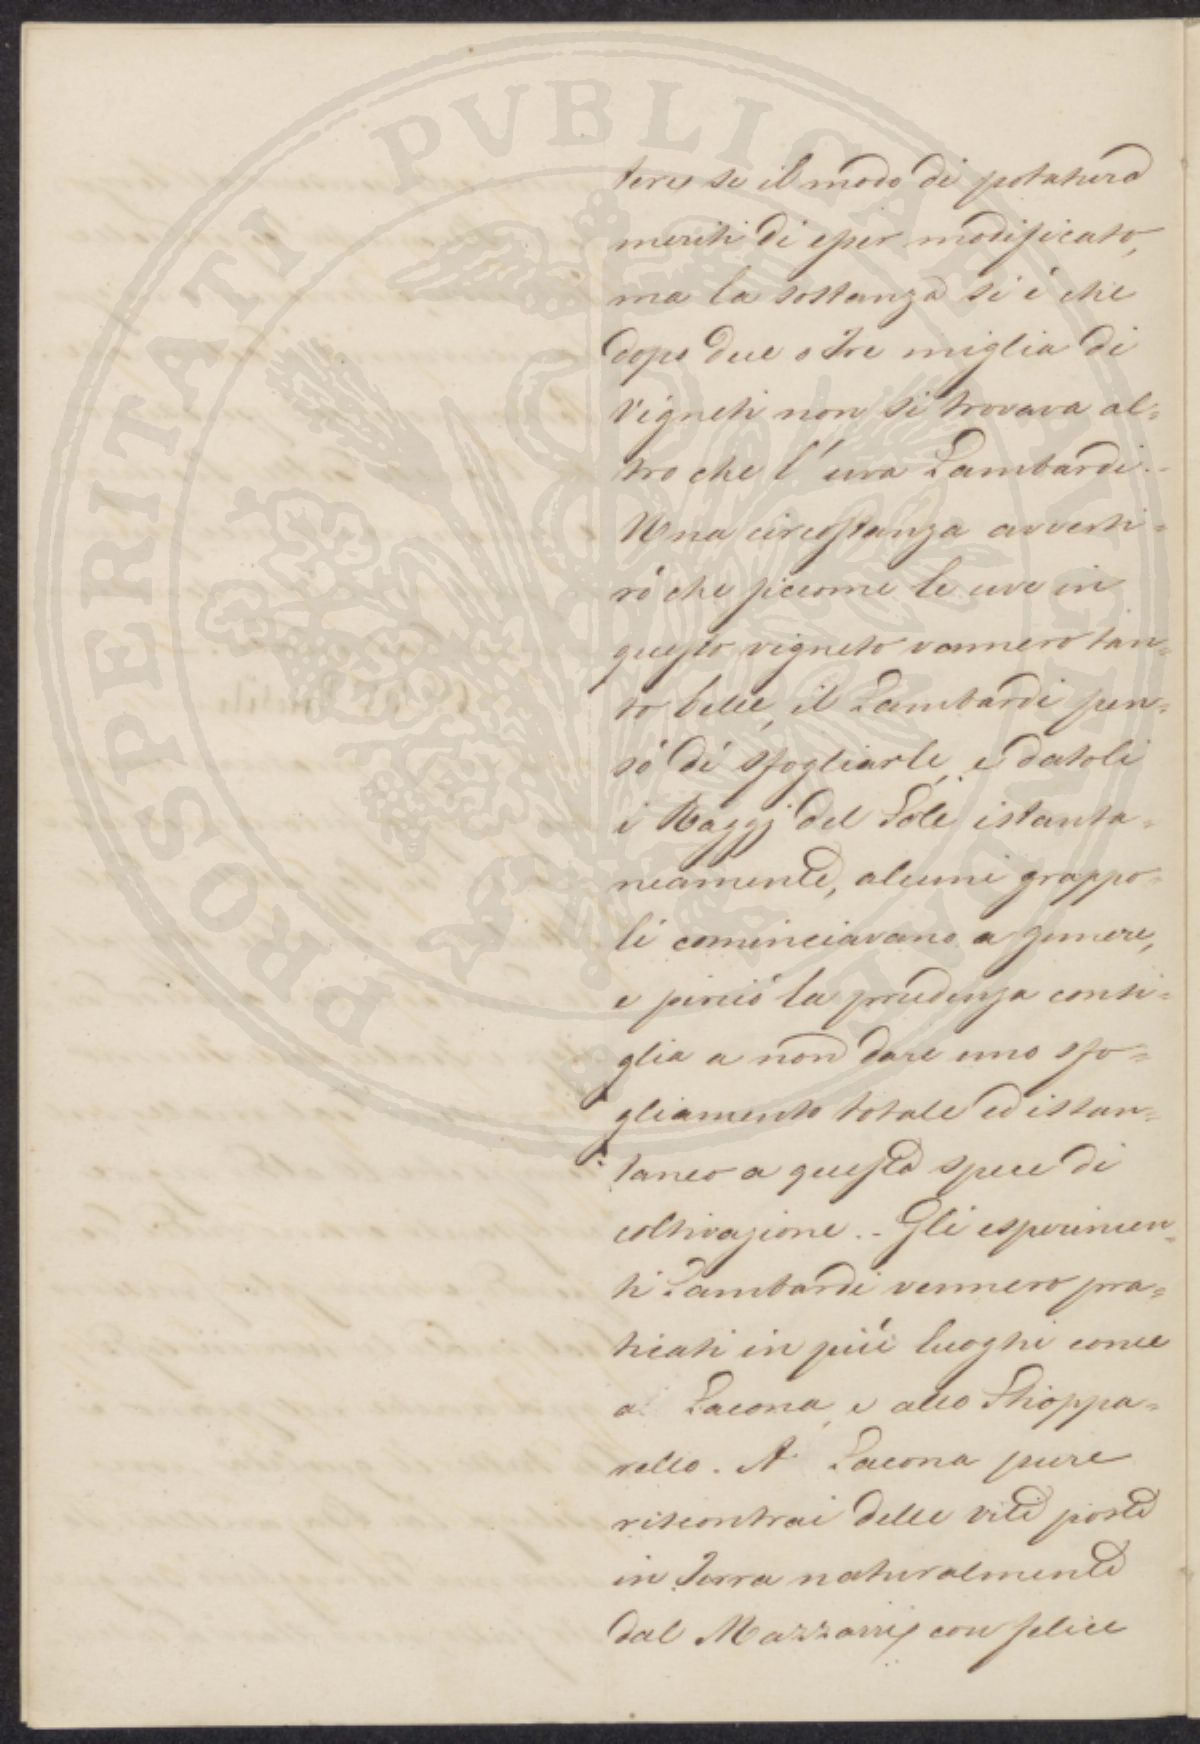 PROSPERITATI PVBLICAE AVGENDAE
tere se il modo di potatura
meriti di esser modificato,
ma la sostanza si é che
dopo due o tre miglia di
Vigneti non si trovava al=
tro che l'uva Lambardi.-
Una circostanza avverti=
ró che siccome le uve in
questo vigneto vennero tan=
to belle, il Lambardi pen=
só di sfogliarle, e datoli
i Raggj del Sole istanta=
neamente, alcuni grappo=
li cominciavano a gemere,
e perció la prudenza consi=
glia a non dare uno sfo=
gliamento totale ed istan=
taneo a questa spece di
coltivazione.- Gli esperimen=
ti Lambardi vennero pra=
ticati in piú luoghi come
a Lacona, e allo Schioppa=
rello. A Lacona pure
riscontrai delle vite poste
in Terra naturalmente
dal Mazzarri con felice